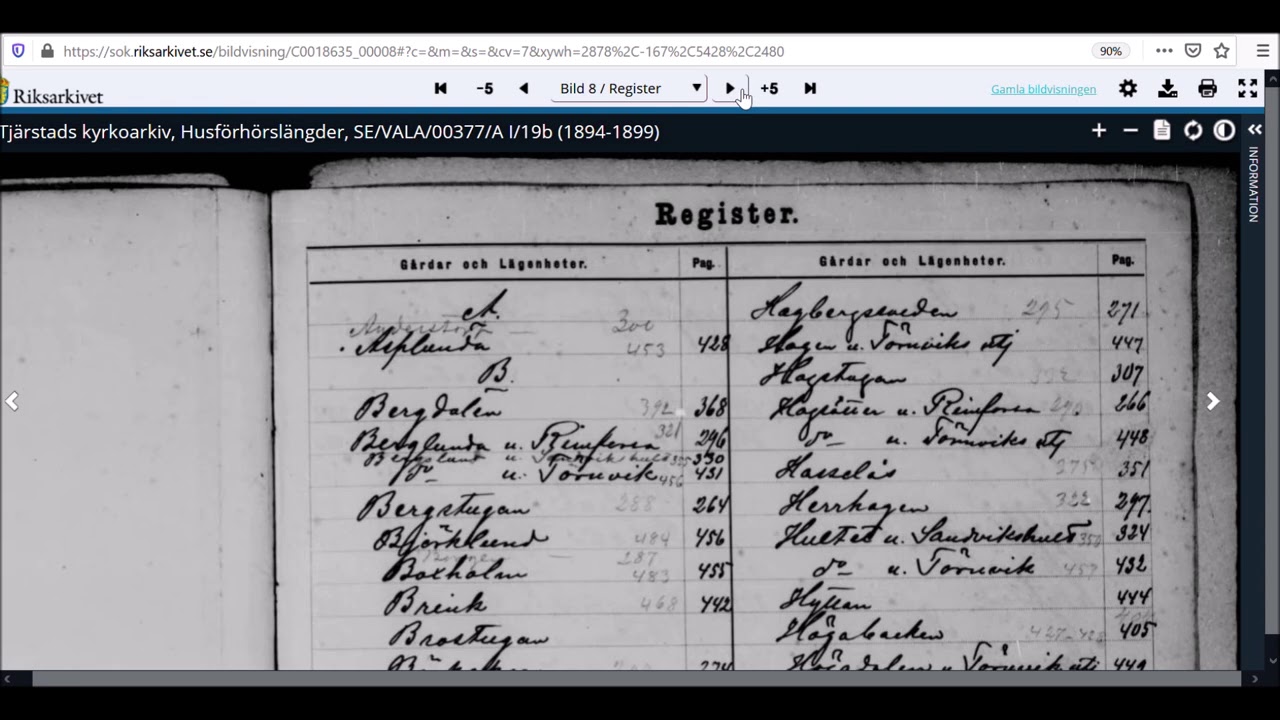 https://sok.riksarkivet.se/bildvisning/C0018635_00008#?c=&m=&s=&cv=7&xywh=2878%2C-167%2C5428%2C2480
90%
Riksarkivet
-5
Bild 8 / Register
+5
Gamla bildvisningen
Tjärstads kyrkoarkiv, Husförhörslängder, SE/VALA/00377/A I/19b (1894-1899)
INFORMATION
Register.
Gårdar och Lägenheter. Pag.
A.
Anderstorp 300
Asplunda 453 428
B.
Bergdalen 392 368
Berglunda u. Rimforsa 321 296
Berglund u. Sandvikshult 355 330
do u. Törnvik 456 431
Bergstugan 288 264
Björklund 484 456
287
Boxholm 483 455
Brink 468 442
Brostugan
274
Gårdar och Lägenheter. Pag.
Hagbergssveden 295 271
Hagen u. Törnviks utj 447
Hagstugan 332 307
Hagsätter u. Rimforsa 290 266
do u. Törnviks utj 448
Hasselås 375 351
Herrhagen 322 297
Hultet u. Sandvikshult 350 324
do u. Törnvik 457 432
Hyttan 444
Högabacken 427-428 405
u. Törnviks utj 449